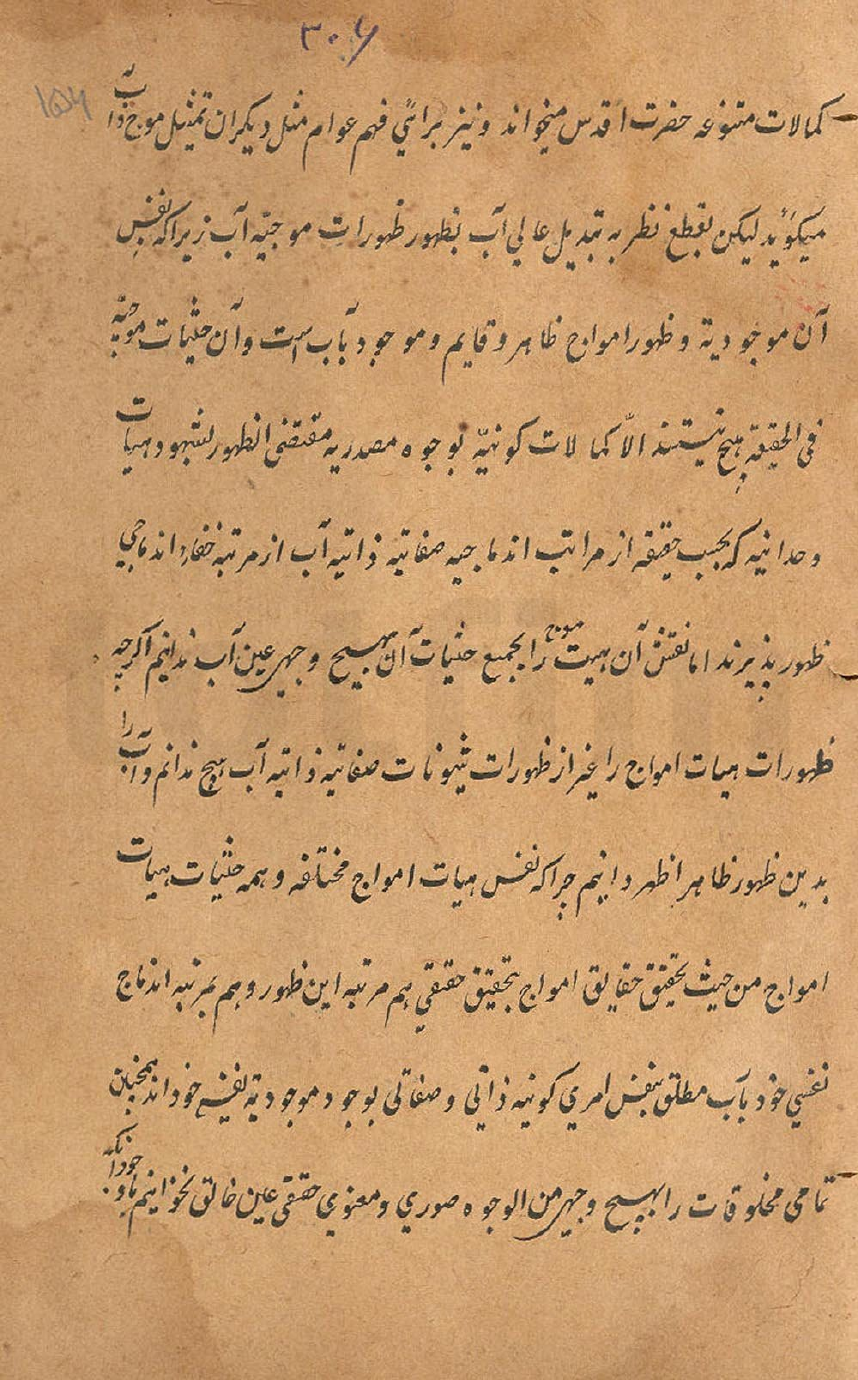 ۳۰۶
کمالات متنوعه حضرت اقدس میخواند و نیز برائی فهم عوام مثل دیکران تمثیل موج و آب
میکوئید لیکن بقطع نظر به تبدیل عالی آب بظهور ظهورات موجیه آب زیرا که نفس
آن موجودیة و ظهور امواج ظاهر و قایم و موجود بآب است و آن حثیات موجیه
فی الحقیقة هیچ نیستند الّا کمالات کونیّه بوجوه مصدریه مقتضی الظهور بشهود هیات
وحدانیه که بحسب حقیقه از مراتب اندماجیه صفاتیه ذاتیه آب از مرتبه خفاء اندماجی
ظهور پذیرند اما نقش آن هیت موج را بجمیع حثیات آن بهیچ وجهی عین آب ندانیم اکرچه
ظهورات هیات امواج را غیر از ظهورات شیونات صفاتیه ذاتیه آب هیچ ندانم و آب را
بدین ظهور ظاهر اظهر دانیم چرا که نفس هیات امواج مختلفه و همه حثیات هیات
امواج من حیث تحقیق حقایق امواج بتحقیق حقیقی هم مرتبه این ظهور و هم بمرتبه اندماج
نفسی خود بآب مطلق بنفس امری کونیه ذاتی و صفاتی بوجود موجودیة نفیسه خود اند همچنین
تمامی مخلوقات را بهیچ وجهی من الوجوه صوری و معنوی حقیقی عین خالق نخوانیم باوجود آنکه